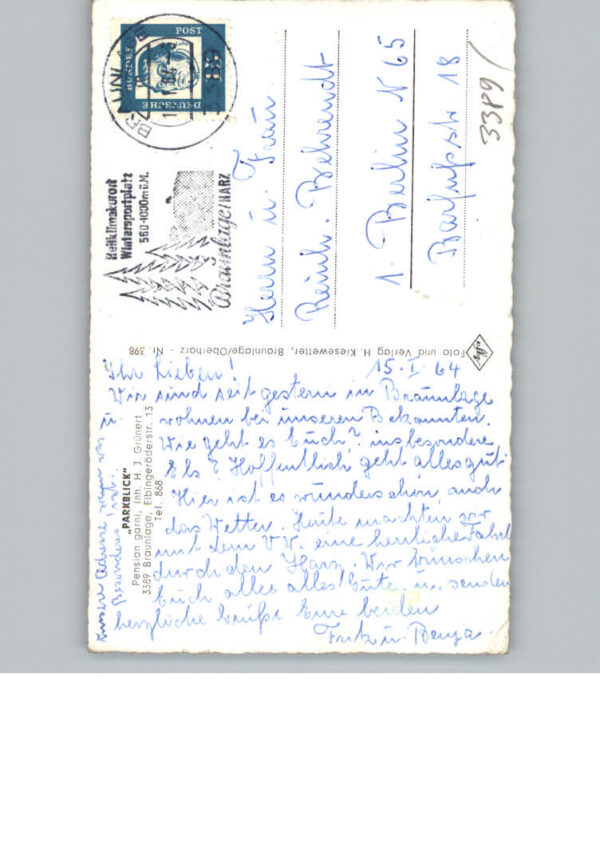 DEUTSCHE
BUNDES
POST
BRAUNLAGE
Heilklimakurort
Wintersportplatz
560-1000m ü.M.
Braunlage/HARZ
Herrn u. Frau
Reinh. Behrendt
1 Berlin N 65
Barfußstr 18
3389
Foto und Verlag H. Kiesewetter, Braunlage/Oberharz - Nr. 398
„PARKBLICK"
Pension garni, Inh. H. J. Grünert
3389 Braunlage, Elbingeröderstr. 13
Tel. 868
15. I. 64
Ihr Lieben!
Wir sind seit gestern in Braunlage
wohnen bei unseren Bekannten.
Wie geht es Euch? insbesondere
Els? Hoffentlich geht alles gut.
Hier ist es wunderschön, auch
das Wetter. Heute machten wir
mit dem VW. eine herrliche Fahrt
durch den Harz. Wir wünschen
Euch alles alles Gute u. senden
herzliche Grüße Eure beiden
Fritz u.
unsere Adresse wenn was
Besonderes ist.